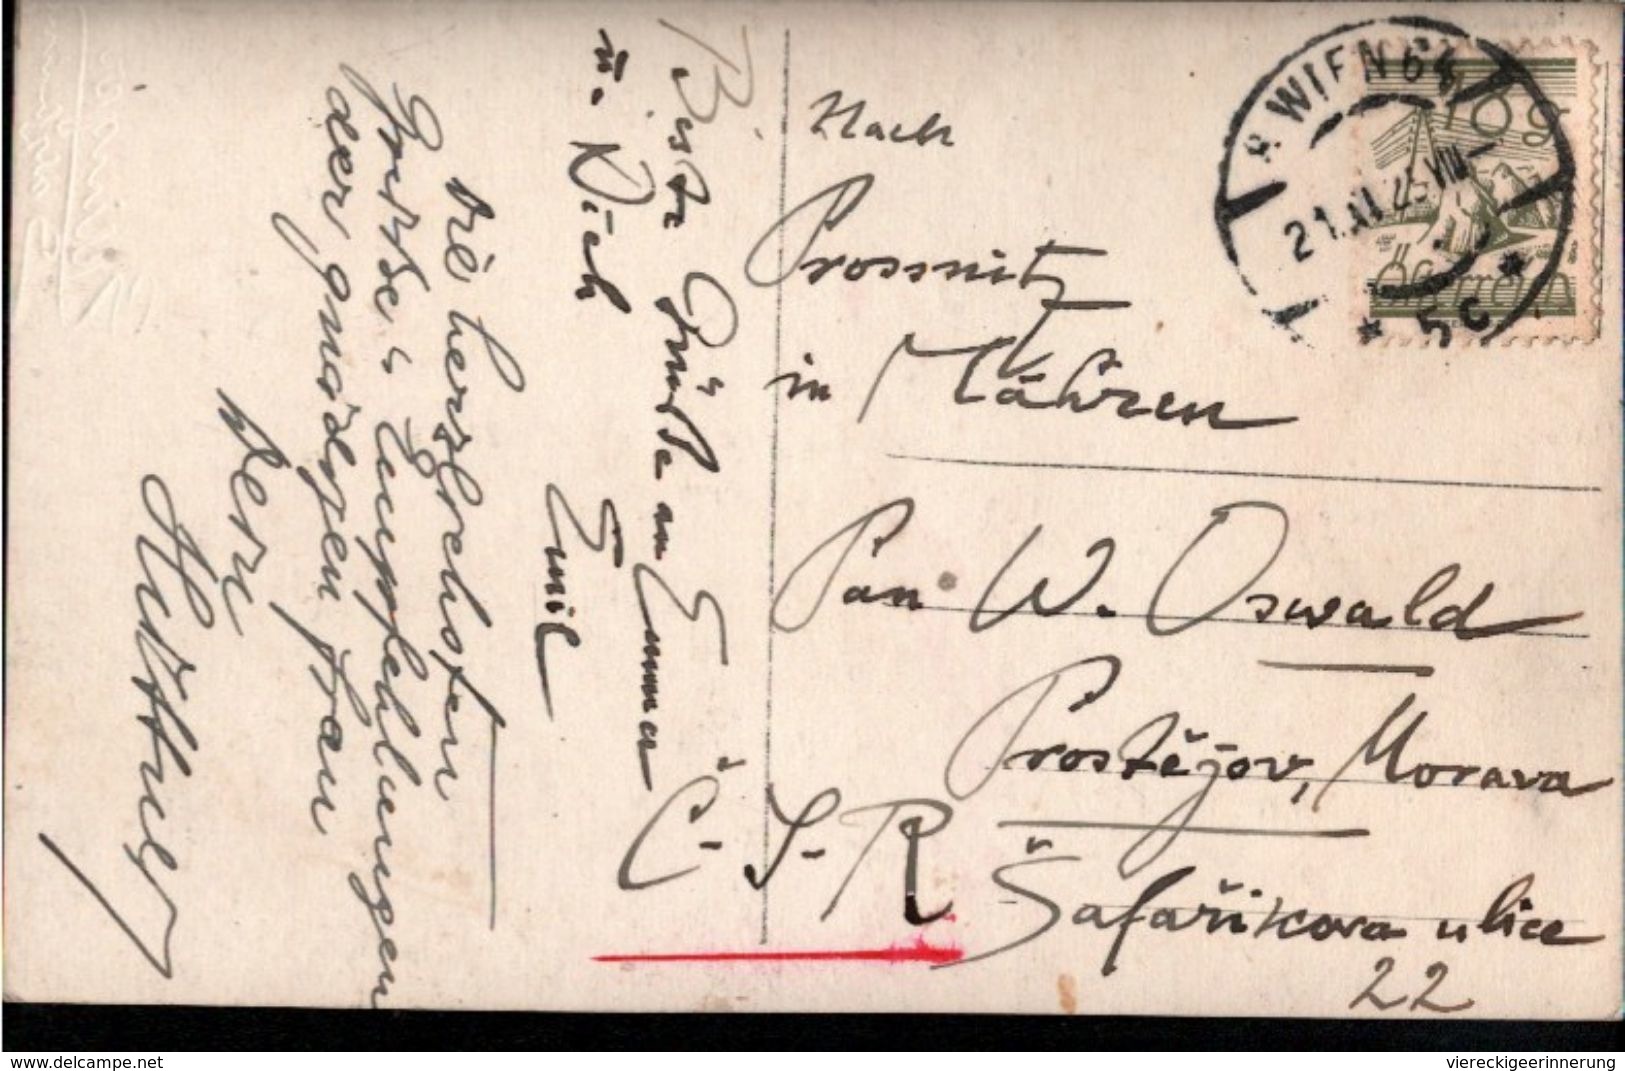 Beste Grüße an Emma
u. Dich
Emil
Die herzlichsten
Grüsse u Empfehlungen
der gnädigen Frau
Hüttner
Nach
Prossnitz
in Mähren
Pan W. Oswald
Prostějov, Morava
Šafaříkova ulice
22
Č. S. R
WIEN 64
* 5c *
10 g
Österreich
www.delcampe.net
viereckigeerinnerung